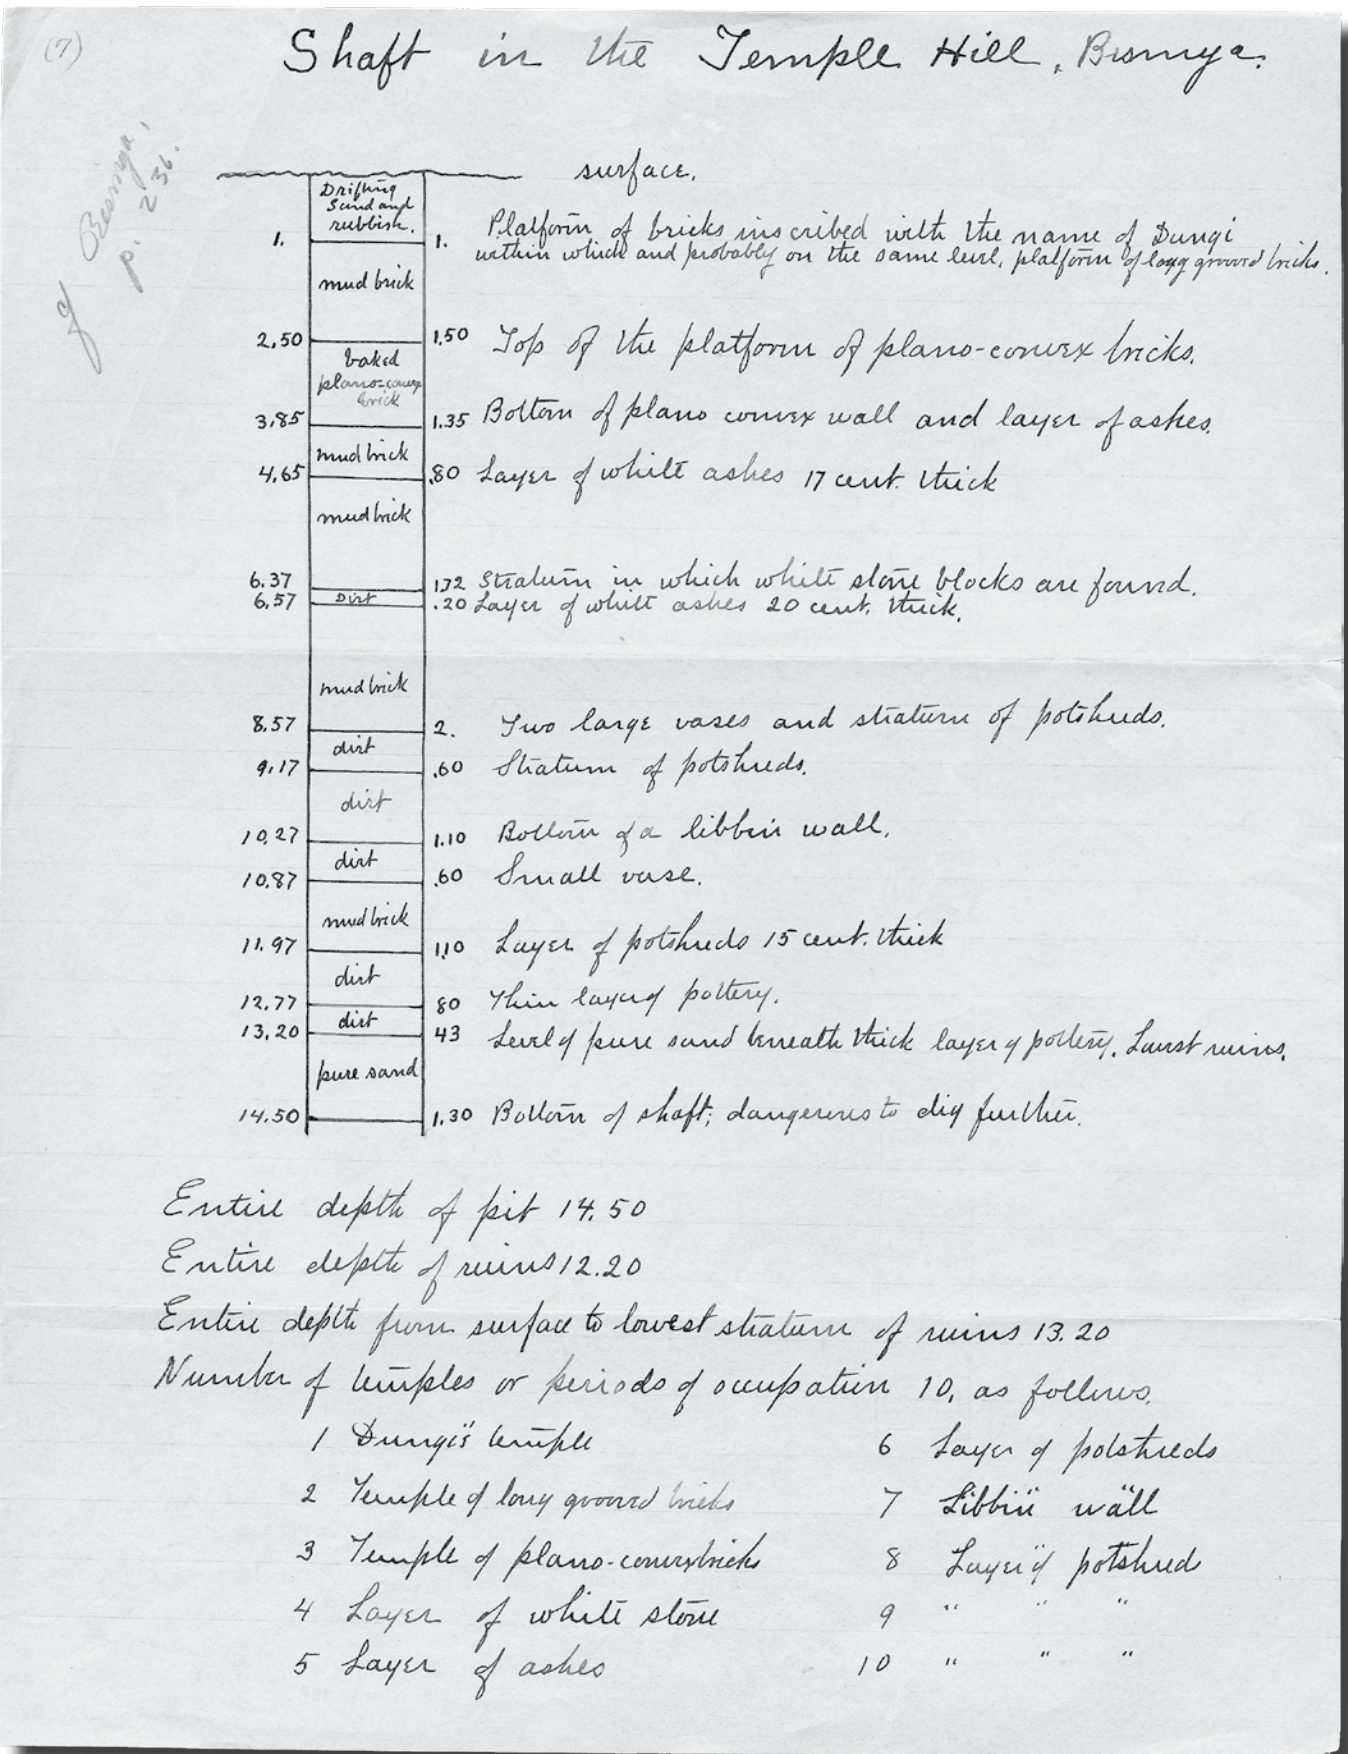 (7)
Shaft in the Temple Hill, Bismya.
cf Bismya,
p. 236.
surface.
Drifting
sand and
rubbish.
1. 1. Platform of bricks inscribed with the name of Dungi
within which and probably on the same level, platform of long grooved bricks.
mud brick
2,50 1.50 Top of the platform of plano-convex bricks.
baked
plano-convex
brick
3,85 1.35 Bottom of plano convex wall and layer of ashes.
mud brick
4,65 .80 Layer of white ashes 17 cent. thick
mud brick
6.37 1.72 Stratum in which white stone blocks are found.
6,57 Dirt .20 Layer of white ashes 20 cent. thick.
mud brick
8.57 2. Two large vases and stratum of potshreds.
dirt
9,17 .60 Stratum of potshreds.
dirt
10,27 1.10 Bottom of a libbin wall.
dirt
10,87 .60 Small vase.
mud brick
11.97 1.10 Layer of potshreds 15 cent. thick
dirt
12.77 80 Thin layer of pottery.
dirt
13,20 43 Level of pure sand beneath thick layer of pottery. Lowest ruins.
pure sand
14.50 1.30 Bottom of shaft; dangerous to dig further.
Entire depth of pit 14.50
Entire depth of ruins 12.20
Entire depth from surface to lowest stratum of ruins 13.20
Number of temples or periods of occupation 10, as follows.
1 Dungi's temple
2 Temple of long grooved bricks
3 Temple of plano-convex bricks
4 Layer of white stone
5 Layer of ashes
6 Layer of potshreds
7 Libbin wall
8 Layer of potshred
9 " " "
10 " " "